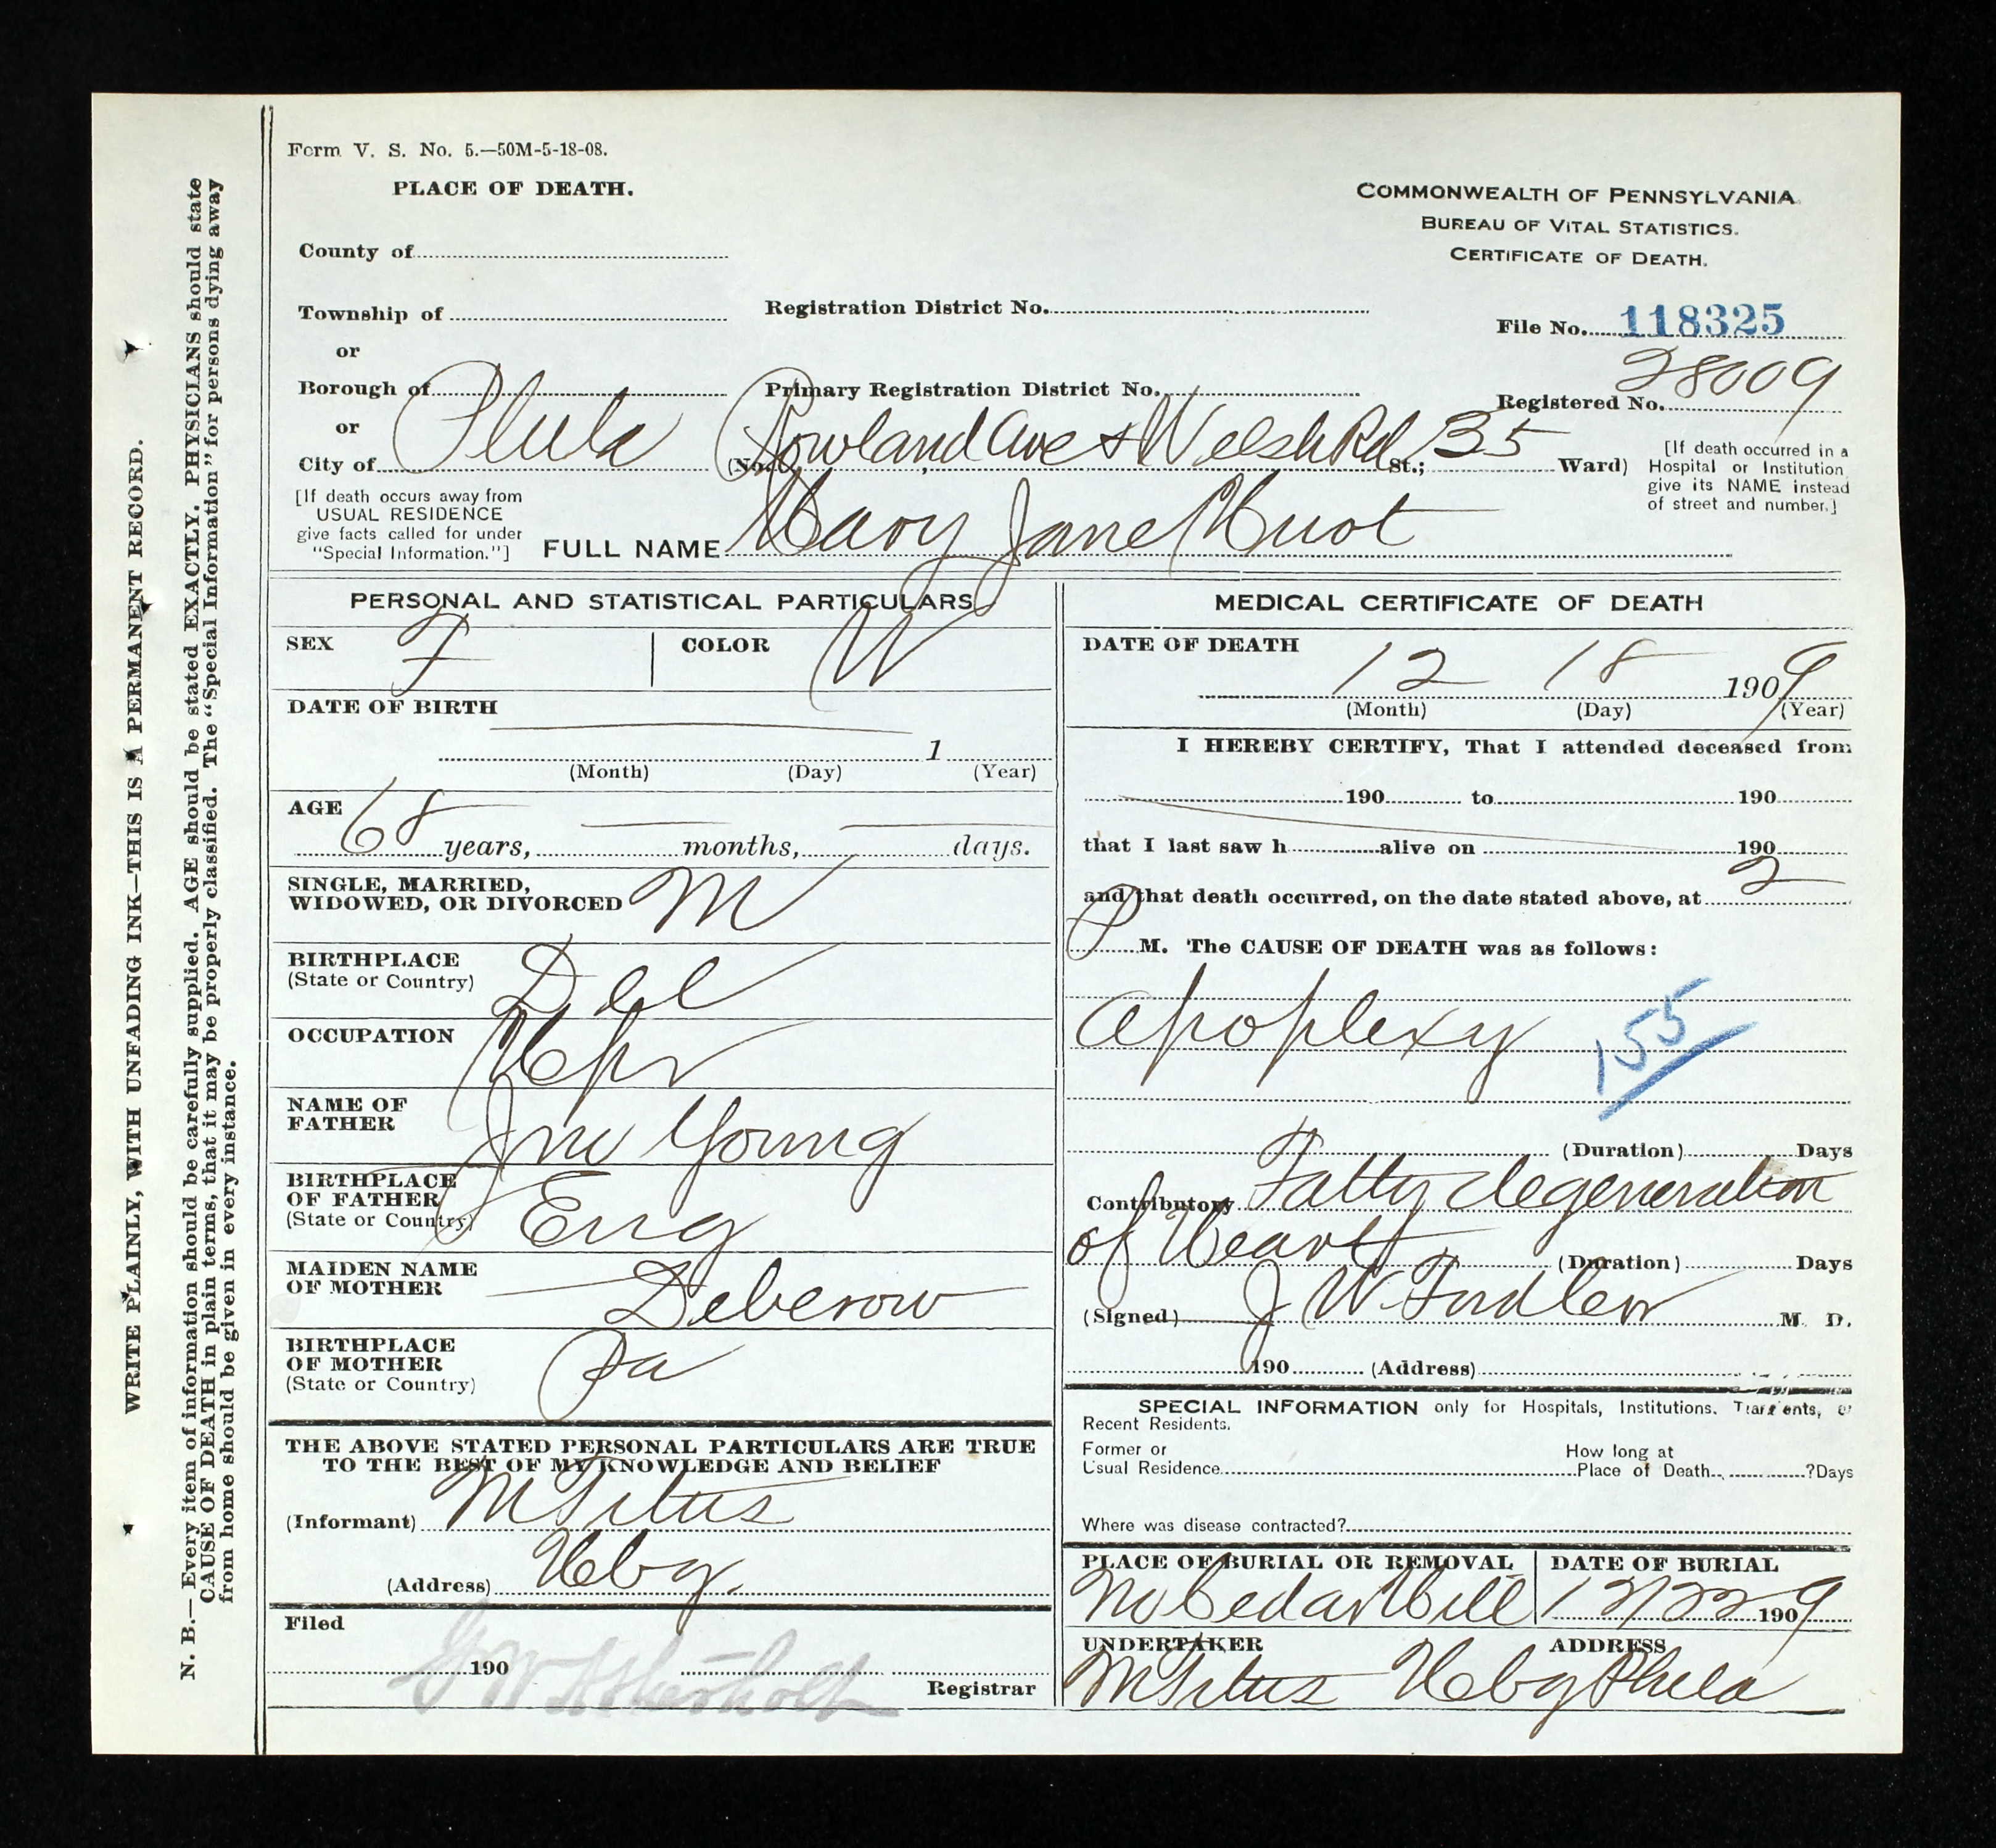 Form V. S. No. 5.—50M-5-18-08.
PLACE OF DEATH.
COMMONWEALTH OF PENNSYLVANIA
BUREAU OF VITAL STATISTICS.
CERTIFICATE OF DEATH.
County of
Township of
Registration District No.
File No. 118325
or
Borough of
Primary Registration District No.
Registered No. 28009
or
City of Phila (No. Rowland Ave & Welsh Rd St.; 35 Ward)
[If death occurred in a
Hospital or Institution
give its NAME instead
of street and number.]
[If death occurs away from
USUAL RESIDENCE
give facts called for under
"Special Information."]
FULL NAME Mary Jane
PERSONAL AND STATISTICAL PARTICULARS
SEX F COLOR W
DATE OF BIRTH
1
(Month) (Day) (Year)
AGE
68 years, months, days.
SINGLE, MARRIED,
WIDOWED, OR DIVORCED M
BIRTHPLACE
(State or Country) Del
OCCUPATION
NAME OF
FATHER Jno Young
BIRTHPLACE
OF FATHER
(State or Country) Eng
MAIDEN NAME
OF MOTHER Deberow
BIRTHPLACE
OF MOTHER
(State or Country) Pa
THE ABOVE STATED PERSONAL PARTICULARS ARE TRUE
TO THE BEST OF MY KNOWLEDGE AND BELIEF
(Informant) M Titus
(Address) Hbg.
Filed
190
Registrar
MEDICAL CERTIFICATE OF DEATH
DATE OF DEATH
12 18 1909
(Month) (Day) (Year)
I HEREBY CERTIFY, That I attended deceased from
190 to 190
that I last saw h alive on 190
and that death occurred, on the date stated above, at 2
P M. The CAUSE OF DEATH was as follows:
Apoplexy 155
(Duration) Days
Contributory Fatty degeneration
of Heart (Duration) Days
(Signed) J W M. D.
190 (Address)
SPECIAL INFORMATION only for Hospitals, Institutions, Transients, or
Recent Residents.
Former or
Usual Residence
How long at
Place of Death ?Days
Where was disease contracted?
PLACE OF BURIAL OR REMOVAL
No Cedar Hill
DATE OF BURIAL
12/22 1909
UNDERTAKER
M Titus
ADDRESS
Hbg Phila
WRITE PLAINLY, WITH UNFADING INK—THIS IS A PERMANENT RECORD.
N. B.—Every item of information should be carefully supplied. AGE should be stated EXACTLY. PHYSICIANS should state
CAUSE OF DEATH in plain terms, that it may be properly classified. The "Special Information" for persons dying away
from home should be given in every instance.